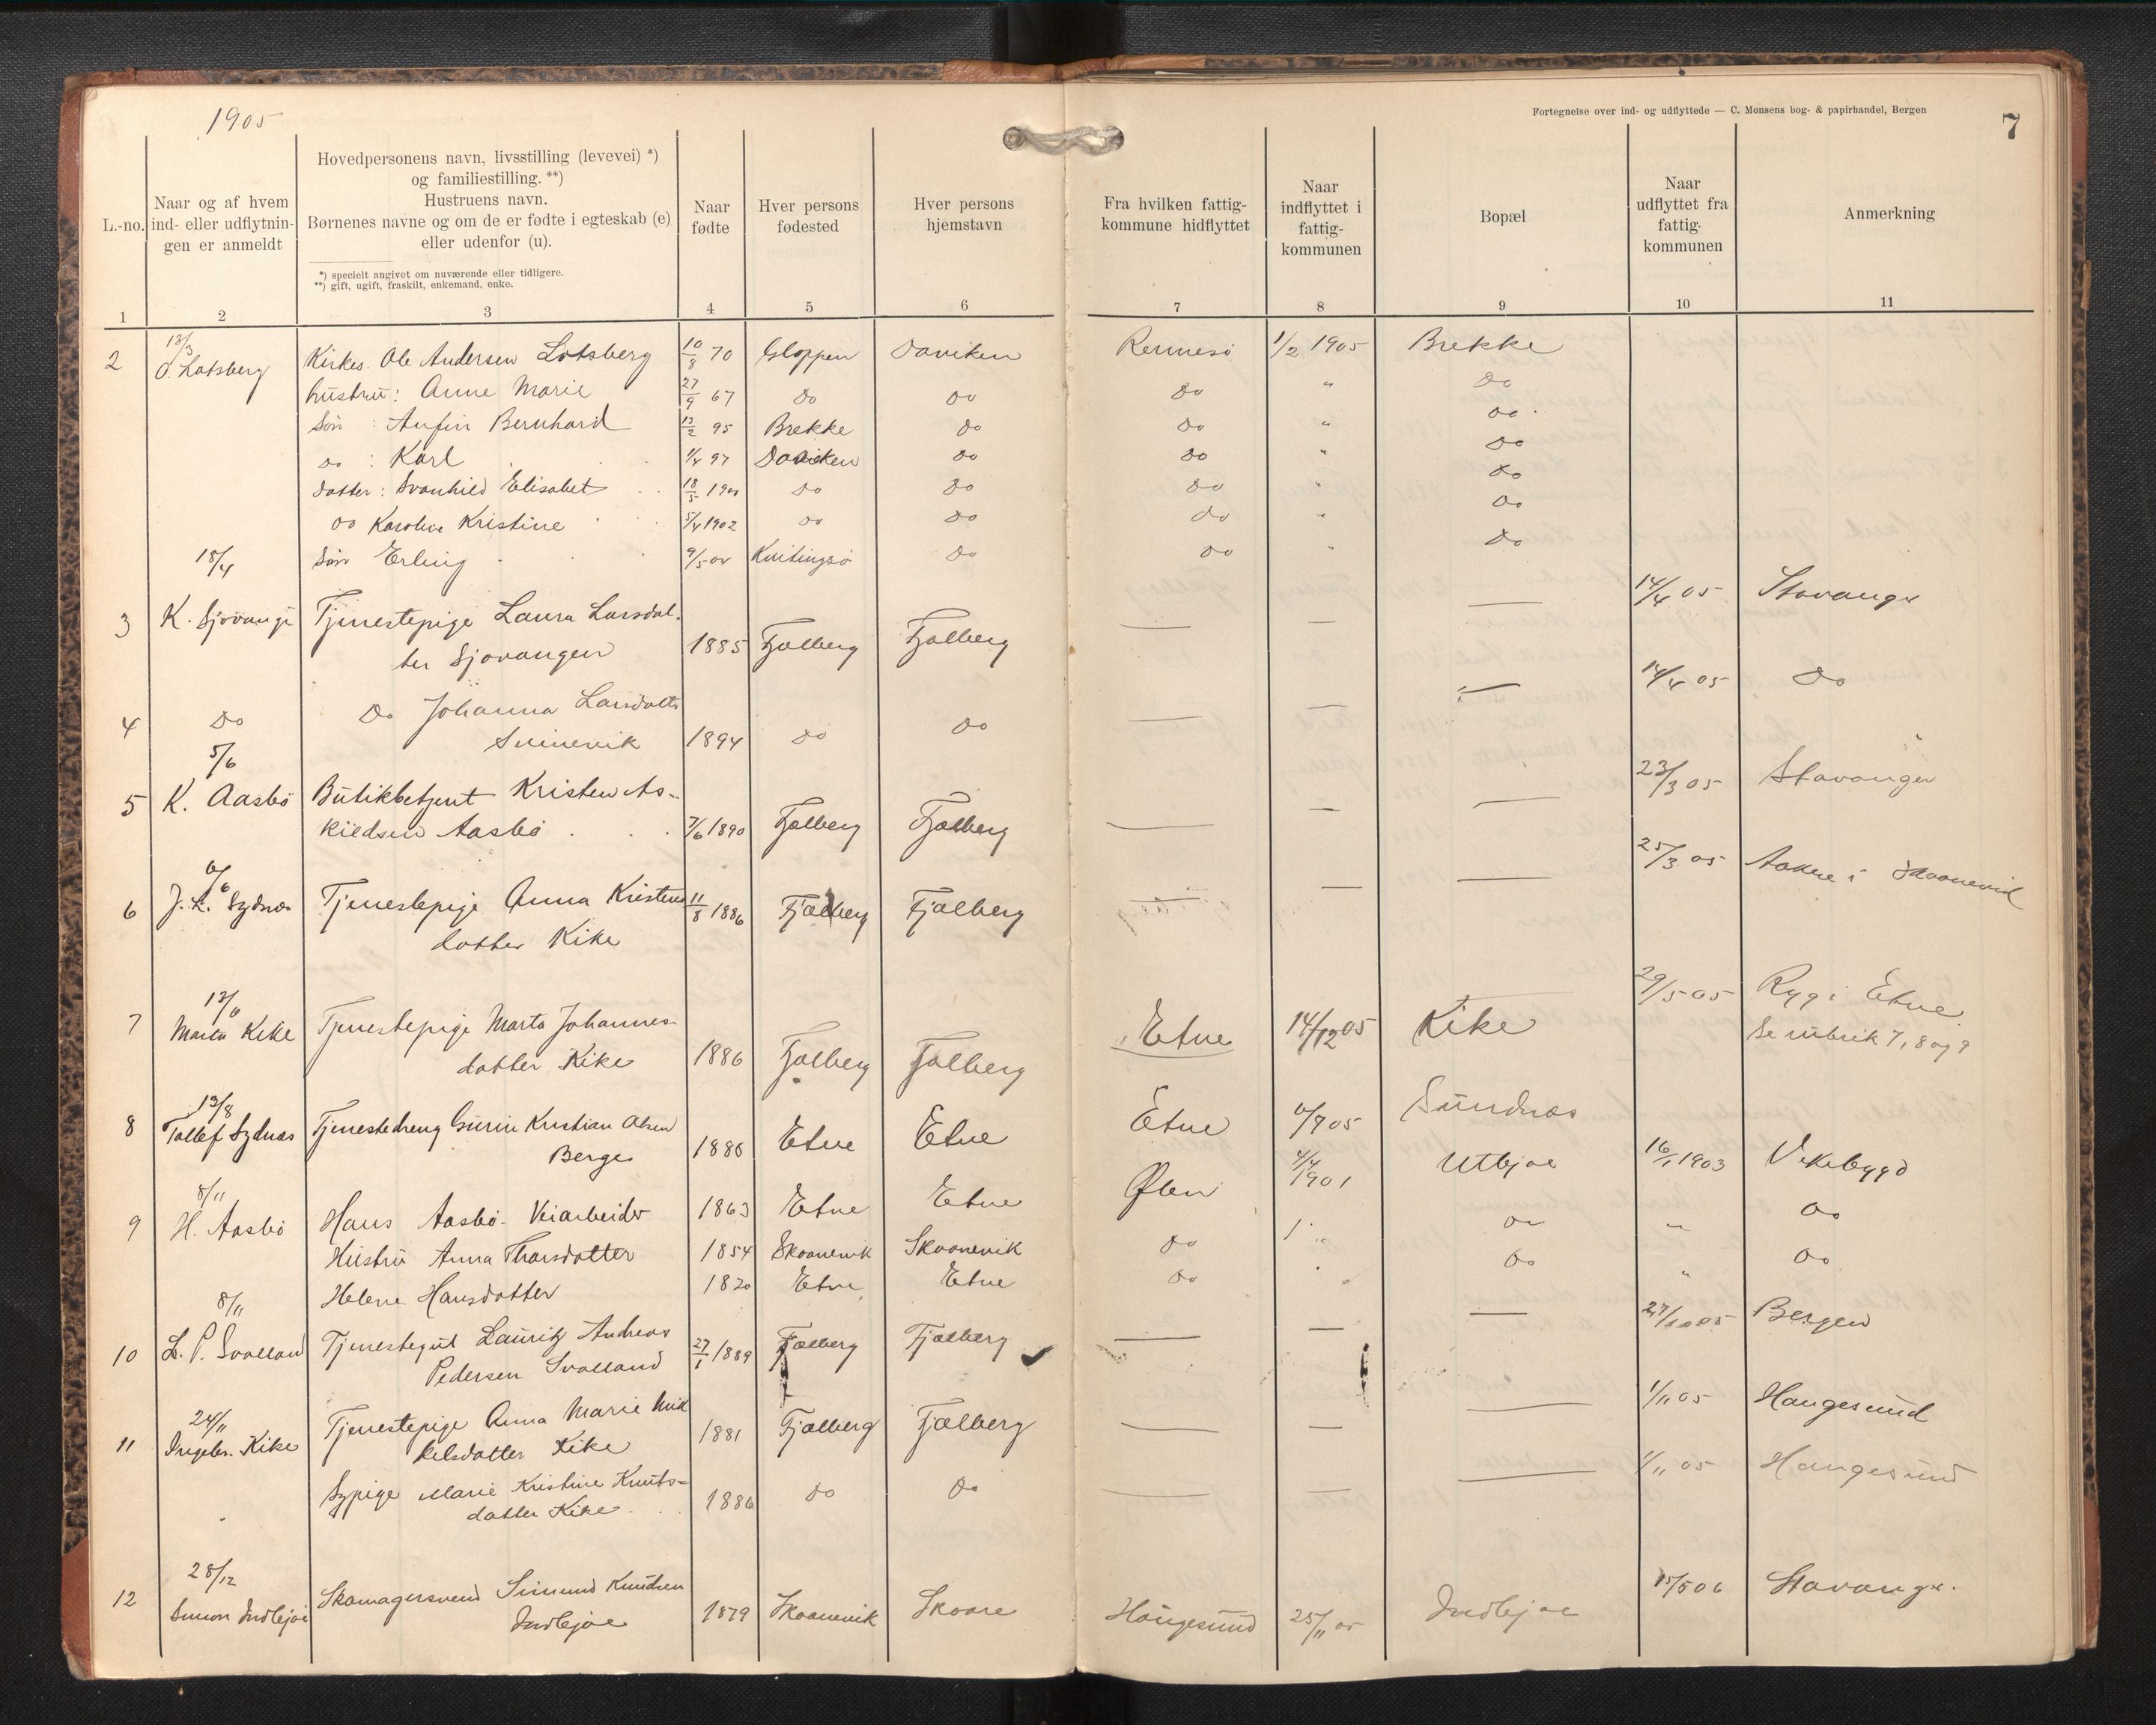 1905
Fortegnelse over ind- og udflyttede — C. Monsens bog- & papirhandel, Bergen
7
L.-no.
Naar og af hvem
ind- eller udflytnin-
gen er anmeldt
Hovedpersonens navn, livsstilling (levevei) *)
og familiestilling. **)
Hustruens navn.
Børnenes navne og om de er fødte i egteskab (e)
eller udenfor (u).
*) specielt angivet om nuværende eller tidligere.
**) gift, ugift, fraskilt, enkemand, enke.
Naar
fødte
Hver persons
fødested
Hver persons
hjemstavn
Fra hvilken fattig-
kommune hidflyttet
Naar
indflyttet i
fattig-
kommunen
Bopæl
Naar
udflyttet fra
fattig-
kommunen
Anmerkning
1 2 3 4 5 6 7 8 9 10 11
13/3
2 O. Lotsberg Kirkes. Ole Andersen Lotsberg 10/8 70 Gloppen Daviken Rennesö 1/2 1905 Brekke
hustru: Anne Marie 27/9 67 do do do " do
Søn : Anfin Bernhard 13/2 95 Brekke do do " do
do : Karl 1/4 97 Daviken do do " do
datter: Svanhild Elisabet 18/5 1900 do do do " do
do Karoline Kristine 5/4 1902 do do do " do
18/4 Søn Erling 9/5 04 Kvitingsö do do " do
3 K. Sjovange Tjenestepige Laura Larsdat- — — — 14/4 05 Stavanger
ter Sjovangen 1885 Fjælberg Fjælberg
4 do do Johanna Larsdatter — — — 14/4 05 do
Svinevik 1894 do do
5/6
5 K. Aasbö Butikbetjent Kristen As- — — — 23/3 05 Stavanger
kildsen Aasbö 7/6 1890 Fjælberg Fjælberg
6/6
6 J. K. Sydnæs Tjenestepige Anna Kristens 11/8 1886 Fjælberg Fjælberg — — — 25/3 05 Aakre i Skaanevik
datter Kike
13/6
7 Marta Kike Tjenestepige Marta Johannes- Etne 14/12 05 Kike 29/5 05 Ryg i Etne
datter Kike 1886 Fjælberg Fjælberg Se rubrik 7, 8 og 9
13/8
8 Tollef Sydnæs Tjenestedreng Gurin Kristian Olsen Etne 6/7 05 Sundnæs
Berge 1886 Etne Etne
8/11
9 H. Aasbö Hans Aasbö. Veiarbeider 1863 Etne Etne Ølen 4/4 1901 Utbjoe 16/1 1903 Vikebygd
Hustru Anna Thorsdatter 1854 Skaanevik Skaanevik do " do " do
Helene Hansdatter 1820 Etne Etne do " do " do
8/11
10 L. P. Svolland Tjenestegut Lauritz Andreas 27/1 1889 Fjælberg Fjælberg — — — 27/10 05 Bergen
Pedersen Svolland
24/11
11 Ingebr. Kike Tjenestepige Anna Marie Mik 1881 Fjælberg Fjælberg — — — 1/11 05 Haugesund
kelsdatter Kike
Sypige Marie Kristine Knuts- 1886 do do — — — 1/11 05 Haugesund
datter Kike
28/12
12 Simon Indbjoe Skomagersvend Simund Knudsen 1879 Skaanevik Skaare Haugesund 25/11 05 Indbjoe 15/5 06 Stavanger.
Indbjoe